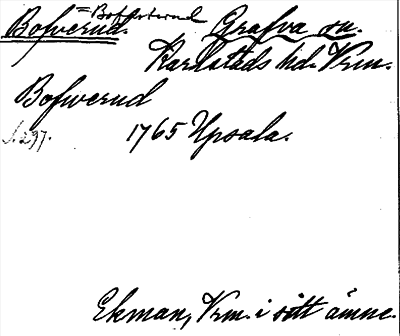 Bofwerud. = Bofferud Grafva sn.
Karlstads hd. Vrm.
Bofwerud
s. 297. 1765 Upsala.
Ekman, Vrm. i sitt ämne.